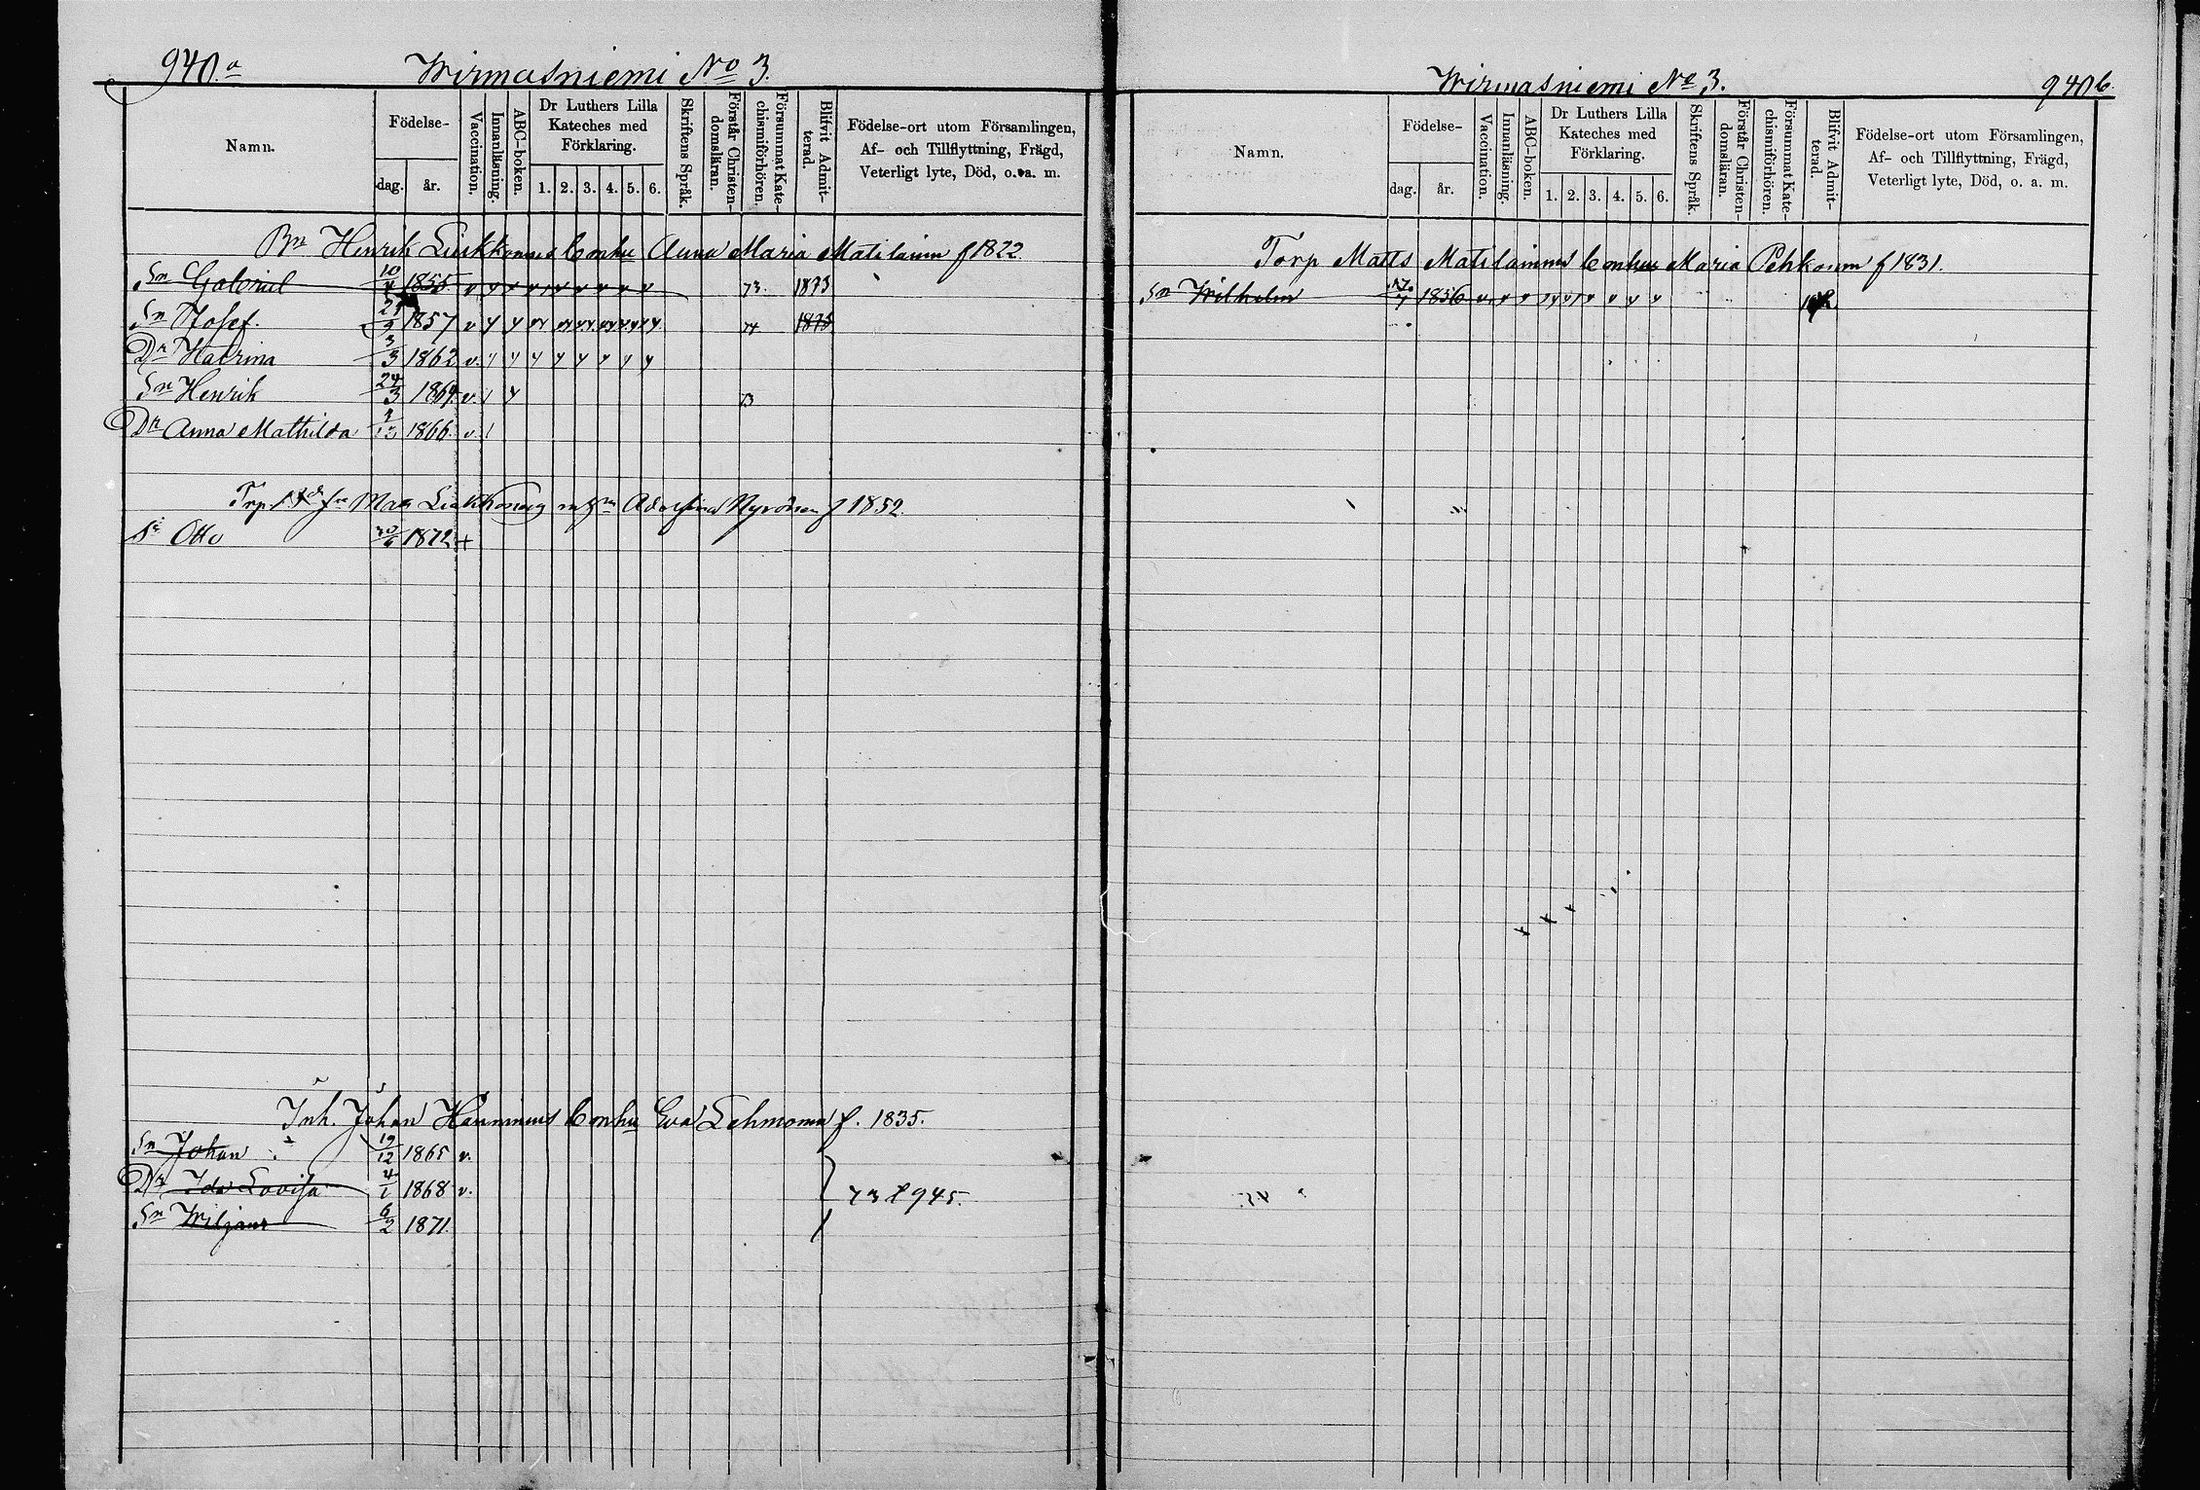 940.a
Wirmasniemi No 3.
Namn.
Födelse-
dag.
år.
Vaccination.
Innanläsning.
ABC-boken.
Dr Luthers Lilla
Kateches med
Förklaring.
1. 2. 3. 4. 5. 6.
Skriftens Språk.
Förstår Christen-
domsläran.
Försummat Kate-
chismiförhören.
Blifvit Admit-
terad.
Födelse-ort utom Församlingen,
Af- och Tillflyttning, Frägd,
Veterligt lyte, Död, o. a. m.
Henrik Conhu Anna Maria f 1822.
Sn Gabriel 10/4 1855 v 73. 1873
Sn Josef. 1857 v 74 1875
Dr Katrina 3/3 1862 v.
Sn Henrik 24/3 1864 v. 73
Dr Anna Mathilda 1866. v.
Torp f 1852.
Sn Otto 1872 +
Inh. Johan Conhu Eva Lehmonen f. 1835.
Sn Johan 19/12 1865 v.
Dr Ida Lovisa 4/1 1868 v.
73 945.
Sn 6/2 1871.
Wirmasniemi No 3.
940b.
Namn.
Födelse-
dag.
år.
Vaccination.
Innanläsning.
ABC-boken.
Dr Luthers Lilla
Kateches med
Förklaring.
1. 2. 3. 4. 5. 6.
Skriftens Språk.
Förstår Christen-
domsläran.
Försummat Kate-
chismiförhören.
Blifvit Admit-
terad.
Födelse-ort utom Församlingen,
Af- och Tillflyttning, Frägd,
Veterligt lyte, Död, o. a. m.
Torp Matts Matilainens Conhu Maria Pehkonen f 1831.
Sn Wilhelm 1856